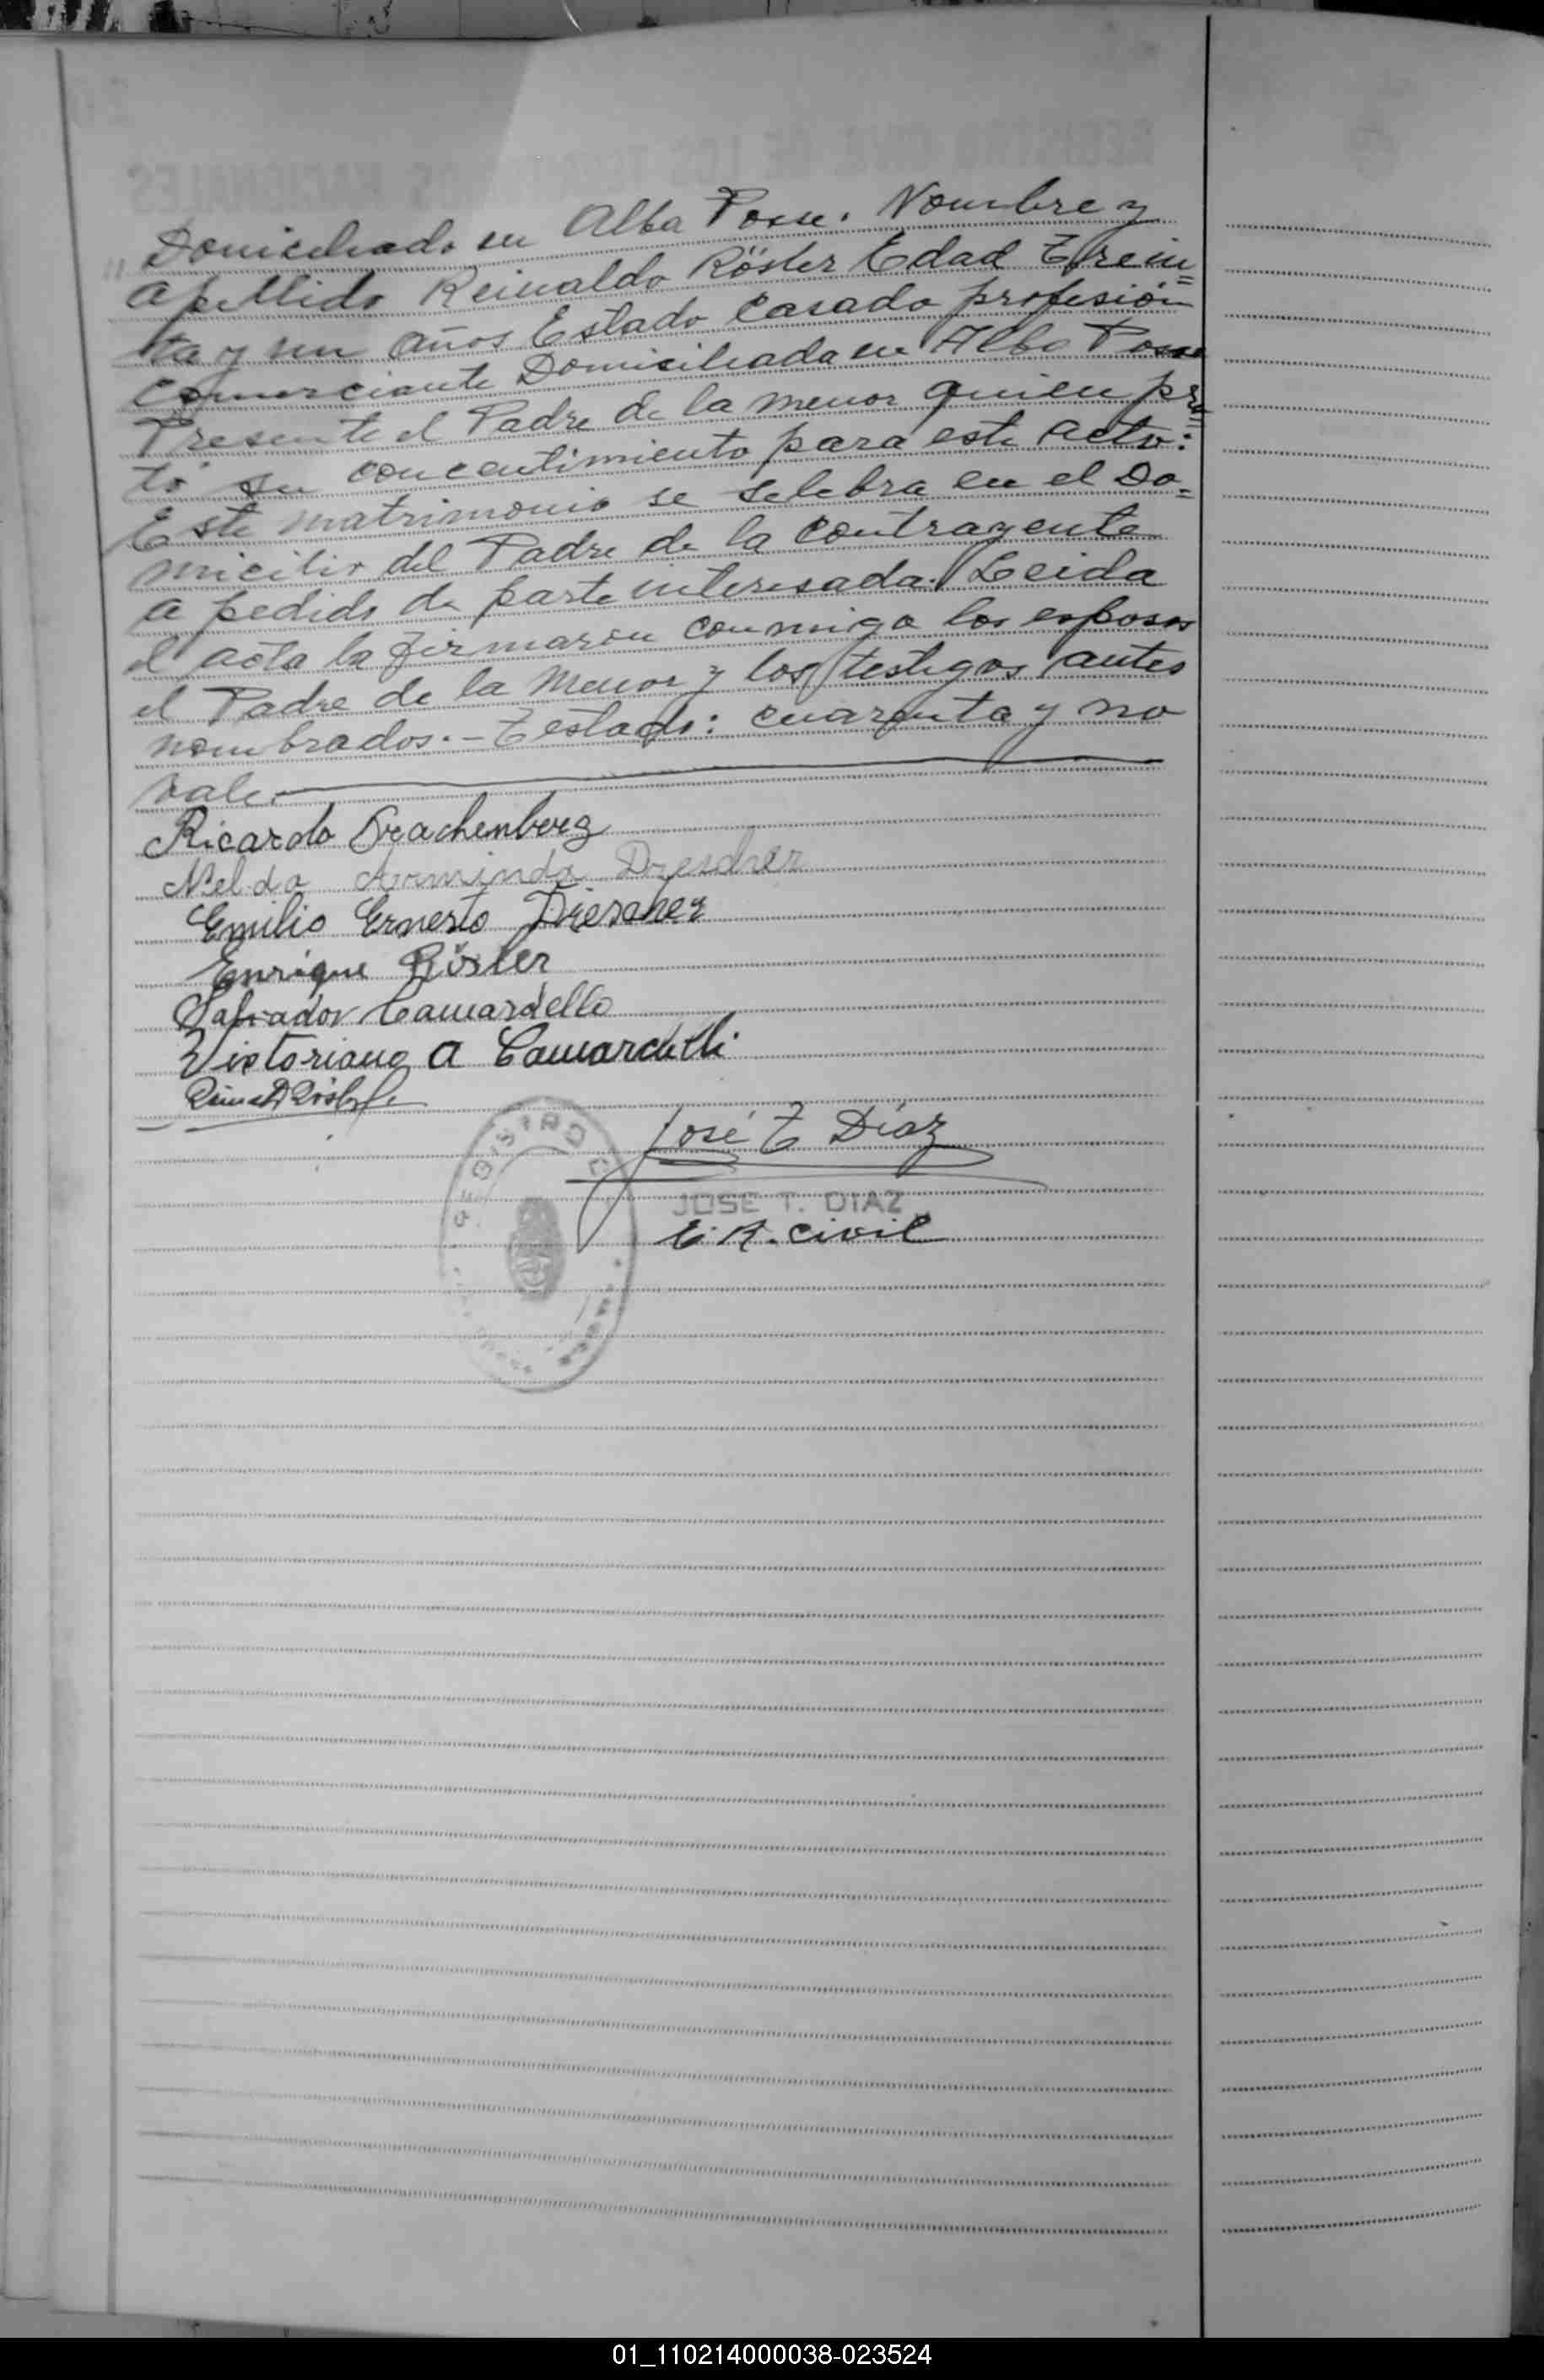 Domiciliado en Alba Posse. Nombre y
apellido Reinaldo Röster Edad Trein=
ta y un años Estado Casado profesión
comerciante Domiciliada en Alba Posse
Presente el Padre de la menor quien pre=
tó su concentimiento para este acto:
Este matrimonio se selebra en el Do=
micilio del Padre de la contrayente
a pedido de parte interesada. Leida
el acta la firmaron conmigo los esposos
el Padre de la menor y los testigos antes
nombrados.- Testado: cuarenta y no
vale.
Ricardo Drachenberg
Nelda Arminda Drescher
Emilio Ernesto Drescher
Enrique Röster
Salvador Camardello
Victoriano A Camardelli
José T Díaz
REGISTRO C
JOSE T. DIAZ
E. R. Civil
01_110214000038-023524